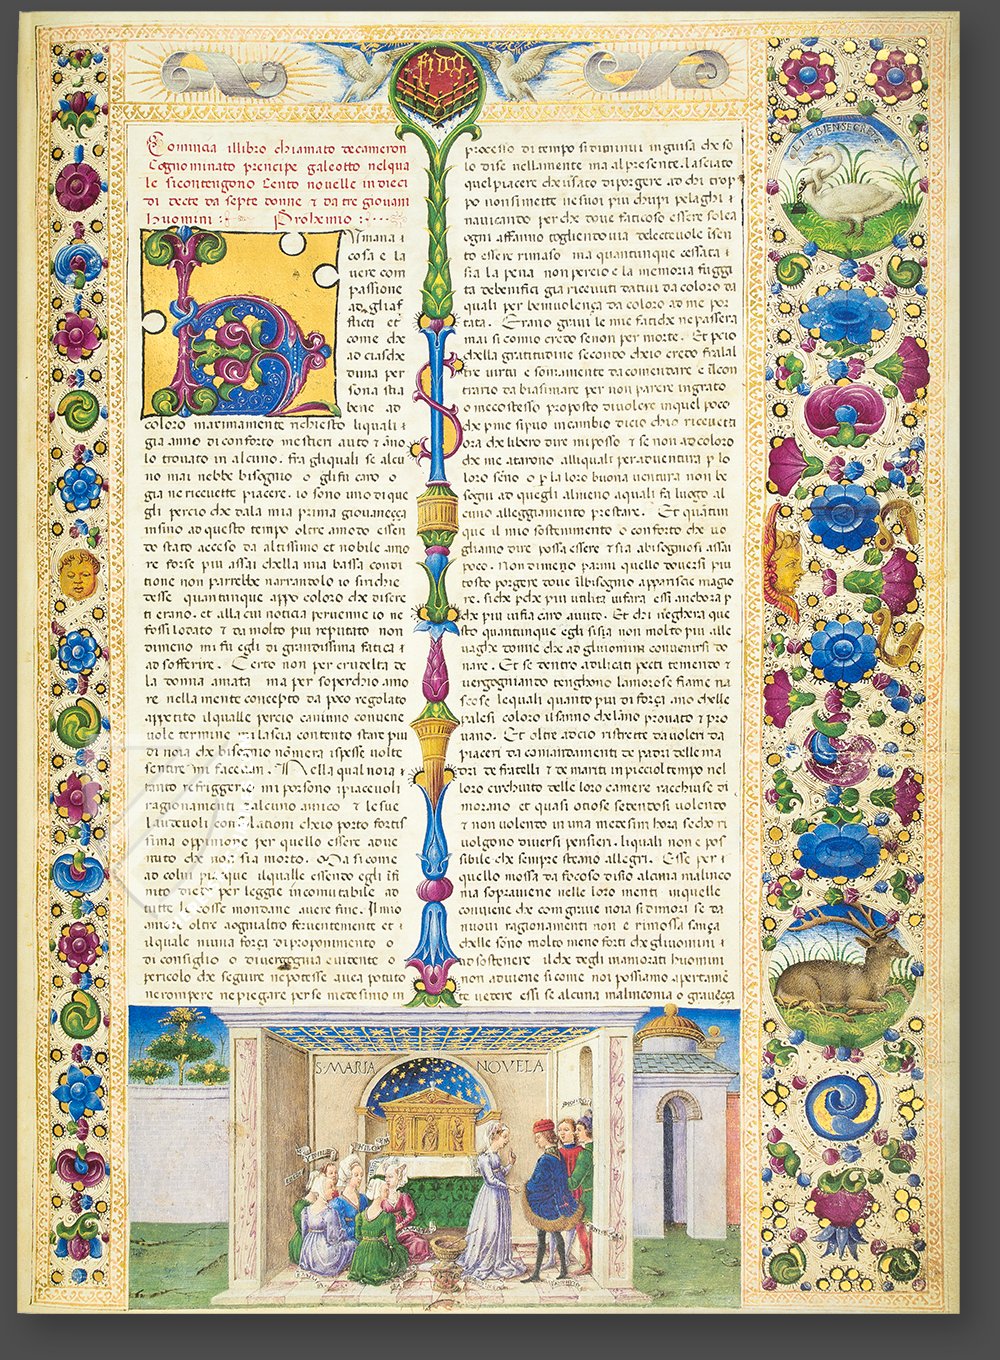 fidō
LIE BIENSECRETE
Comincia illibro chiamato decameron
Cognominato prencipe galeotto nelqua
le sicontengono Cento novelle in dieci
di decte da septe donne & da tre giovani
huomini : Prohemio :
Vmana e
cosa e la
uere com
passione
ad gliaf
flicti et
come che
ad ciasche
duna per
sona stia
bene ad
coloro maximamente richiesto liquali
gia anno di conforto mestieri auto &
lo trovato in alcuno. fra gliquali se alcu
no mai nebbe bisogno o gli fu caro o
gia ne ricevette piacere. io sono uno di que
gli percio che dala mia prima giovaneçça
insino ad questo tempo oltre amodo essen
do stato acceso da altissimo et nobile amo
re forse piu assai chella mia bassa condi
tione non parrebbe narrandolo io si richie
desse quantunque appo coloro che discre
ti erano. et alla cui noticia pervenne io ne
fossi lodato & da molto piu reputato non
dimeno mi fu egli di grandissima fatica
ad sofferire. Certo non per crudelta de
la donna amata ma per soperchio amo
re nella mente concepto da poco regolato
appetito ilqualle percio
uole termine mi lascia contento stare piu
di noia che bisogno nōmera spesse volte
sentire mi faccian. Nella qual noia
tanto refriggero mi porsono ipiacevoli
ragionamenti dalcuno amico & le sue
laudevoli consolationi chio porto fortis
sima oppinione per quello essere adve
nuto che non sia morto. Ma si come
ad colui piaque ilqualle essendo egli ifi
nito diede per leggie incomutabile ad
tutte le cosse mondane avere fine. Il mio
amore oltre aognaltro ferventemente et
ilquale niuna força di proponimento o
di consiglio o divergogna evidente o
pericolo che seguire nepotesse avea potuto
ne rompere ne piegare per se medesimo in
processo di tempo si diminui inguisa che so
lo dise nellamente ma al presente. lasciato
quel piacere che usato di porgere ad chi trop
po non si mette ne suoi piu chupi pelaghi
navicando per che dove faticoso essere solea
ogni affanno togliendo via delectevole i sen
to essere rimaso ma quantunque cessata
sia la pena non percio e la memoria fuggi
ta debenifici gia ricevuti dativi da coloro da
quali per benivolença da coloro ad me por
tata. Erano gravi le mie fatiche ne passera
mai si como credo se non per morte. Et peio
chella gratitudine secondo cheio credo fralal
tre virtu e somamente da comendare e il con
trario da biasimare per non parere ingrato
o meco stesso proposto di volere in quel poco
che p me si puo in cambio dicio chio ricevetti
ora che libero dire mi posso & se non ad coloro
che me atarono alliquali per adventura p lo
loro seno o p la loro buona ventura non be
segni ad quegli almeno aquali fa luogo al
cuno alleggiamento prestare. Et quātun
que il mio sostenimento o conforto che vo
gliamo dire possa essere & sia abisognosi assai
poco. Non dimeno parmi quello doversi piu
tosto porgere dove il bisogno apparisce magio
re. si che p che piu utilita vi fara essi anchora p
che piu vi fia caro avuto. Et chi neghera que
sto quantunque egli si sia non molto piu alle
vaghe donne che ad gli uomini convenirsi do
nare. Et se dentro adilicati pecti temendo &
vergogniando tenghono lamorose fiame na
scose lequali quanto piu di força .ano chelle
palesi coloro il sanno che lāno provato & pro
vano. Et oltre adcio ristrette da voleri da
piaceri da comandamenti de padri delle ma
dri de fratelli & de mariti in picciol tempo nel
loro circhuito delle loro camere racchiuse di
morano et quasi otiose setendosi volendo
& non volendo in una medesim hora secho ri
volgono diversi pensieri. liquali non e pos
sibile che sempre steano allegri. Esse per
quello mossa da focoso disio alcuna malinco
nia sopraviene nelle loro menti in quelle
conviene che com grave noia si dimori se da
nuovi ragionamenti non e rimossa sança
chelle sōno molto meno forti che gli uomini
ad sostenere il che degli inamorati huomini
non adviene si come noi possiamo apertamēte
te vedere essi se alcuna malinconia o graveçça
S·MARIA NOVELA